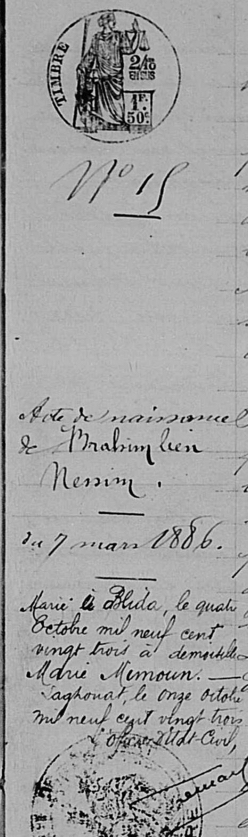 TIMBRE
2/10
EN SUS
1F.
50c.
N° 15
Acte de naissance
de Brahim ben
Nessim.
du 7 mars 1886.
Marié à Blida, le quatre
Octobre mil neuf cent
vingt trois à demoiselle
Marie Mimoun. —
Laghouat, le onze octobre
mil neuf cent vingt trois
L'off. de l'état Civil,